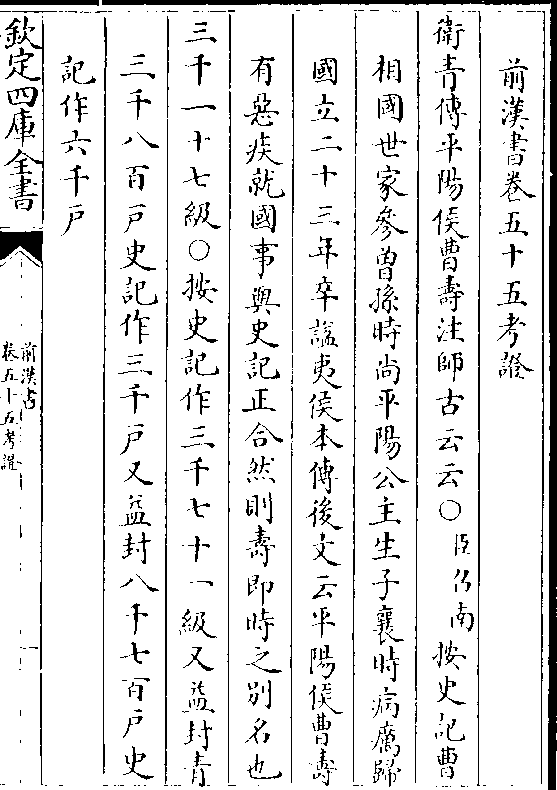 前漢書卷五十五考證
衛青傳平陽侯曹壽注師古云云○臣召南按史記曹
相國世家參曾孫時尚平陽公主生子襄時病癘歸
國立二十三年卒諡夷侯本傳後文云平陽侯曹壽
有惡疾就國事與史記正合然則壽即時之別名也
三千一十七級○按史記作三千七十一級又益封青
三千八百戸史記作三千戸又益封八千七百戸史
記作六千戸
欽定四庫全書
前漢書
卷五十五考證
一